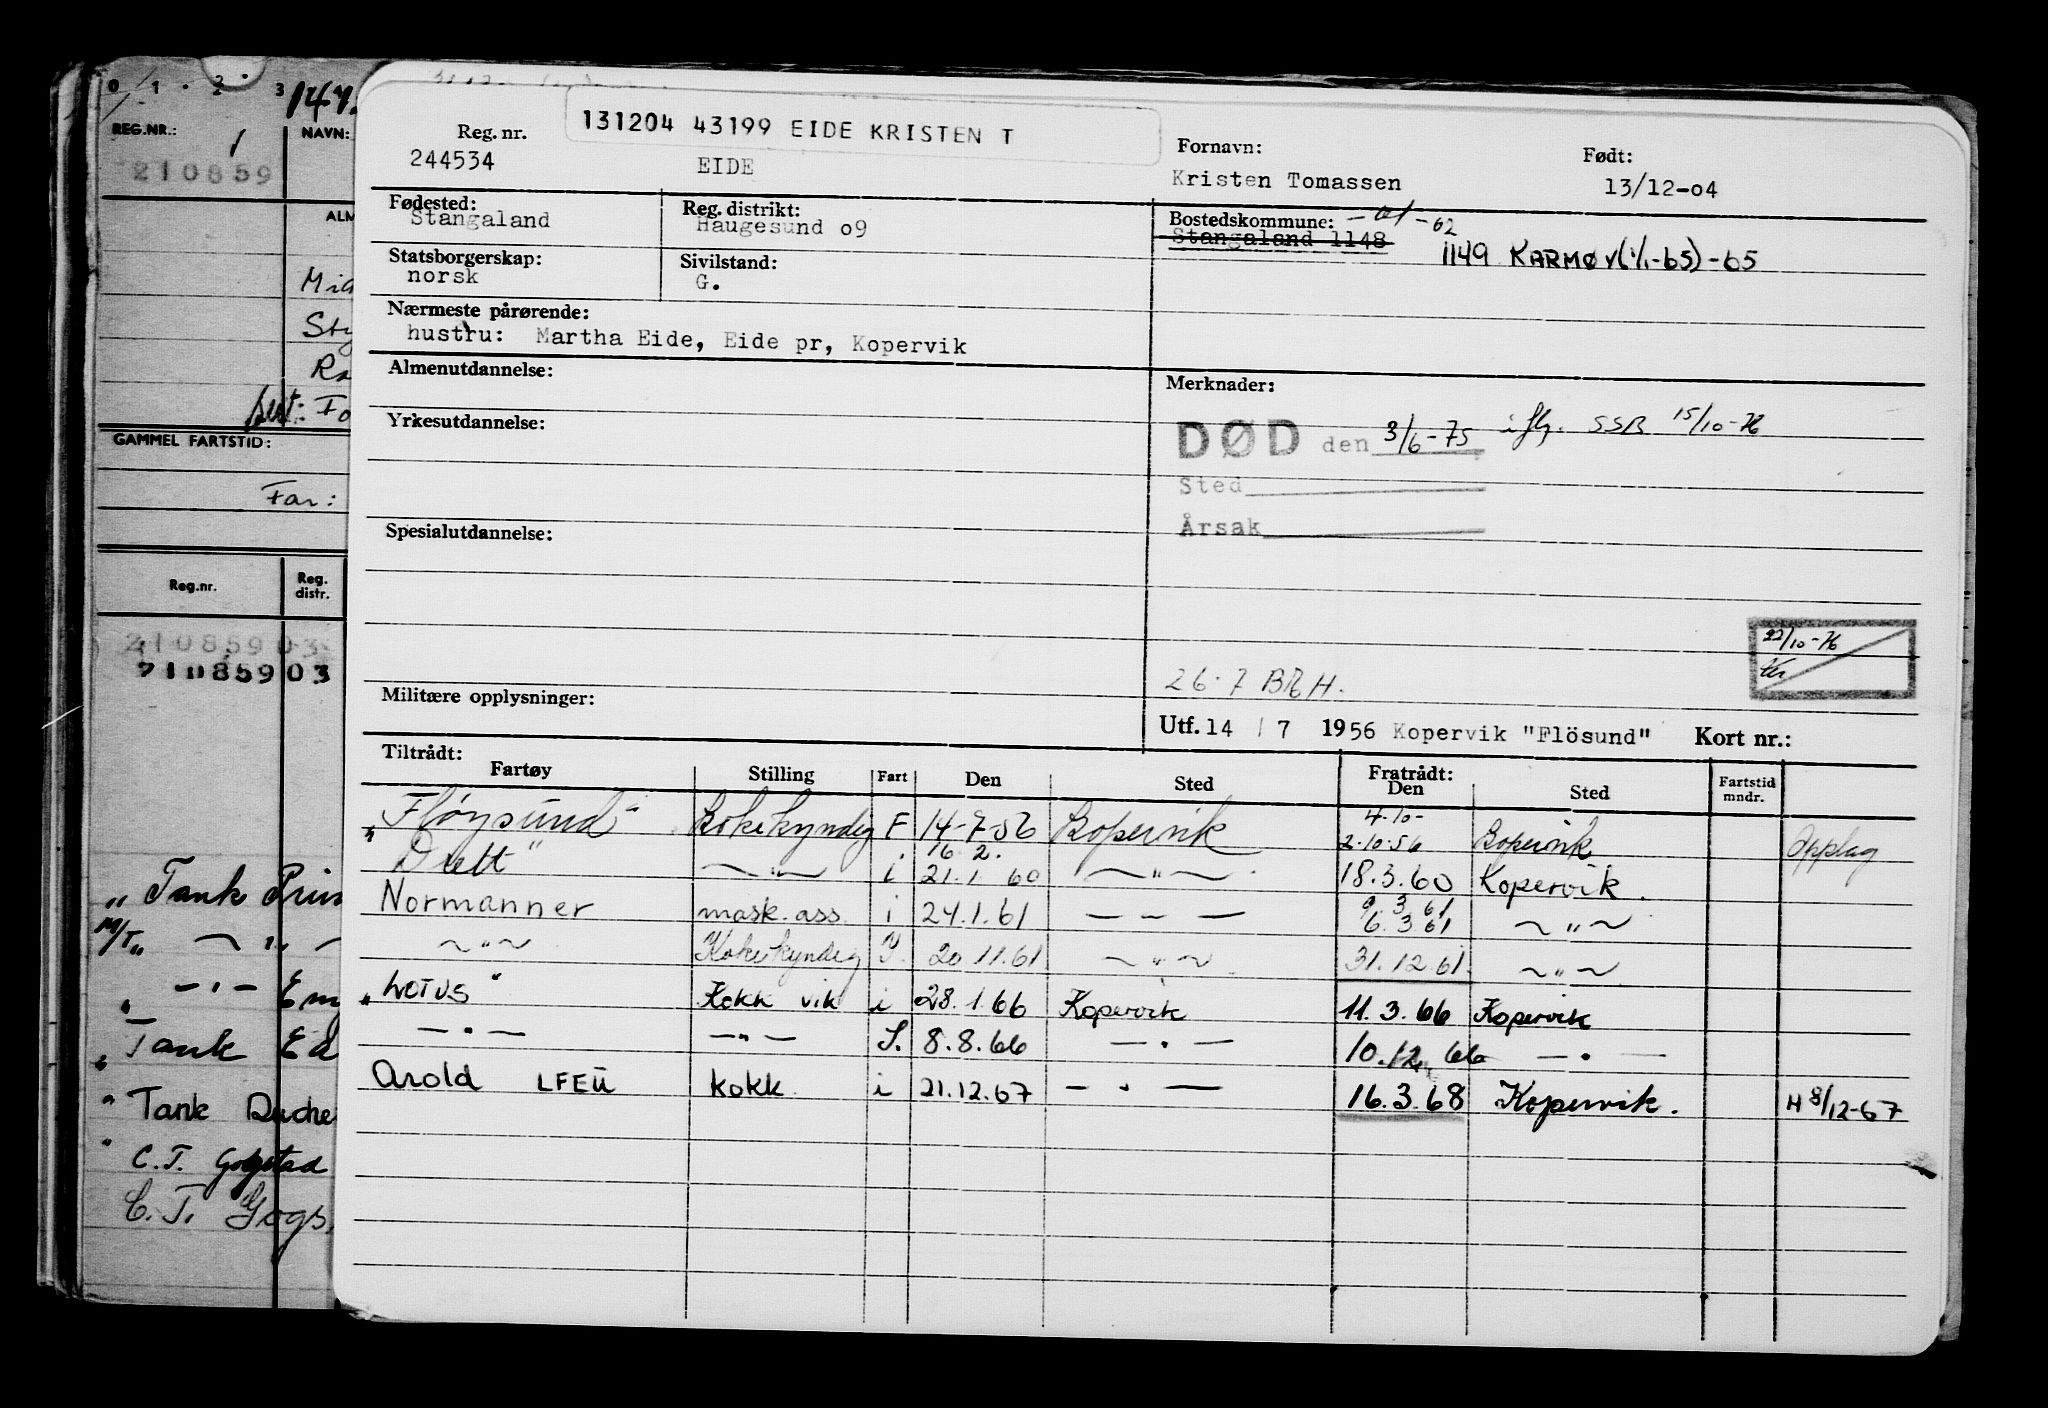 0 1 2 3
147.
REG.NR.: 1 NAVN:
210859
ALM
Mid
Sty
Ra
best: Fo
GAMMEL FARTSTID:
Far:
Reg.nr. Reg. distr.
210859 03
210859 03
„ Tank Prin
M/T„ — „ —
„ — „ — Em
„ Tank Ed
" Tank Duche
" C.T. Gogstad
C.T. Gogs
131204 43199 EIDE KRISTEN T
Reg. nr. Fornavn: Født:
244534 EIDE Kristen Tomassen 13/12-04
Fødested: Reg. distrikt: Bostedskommune: -61-62
Stangaland Haugesund 09 Stangaland 1148
1149 KARMØY(1/1-65)-65
Statsborgerskap: Sivilstand:
norsk G.
Nærmeste pårørende:
hustru: Martha Eide, Eide pr, Kopervik
Almenutdannelse: Merknader:
Yrkesutdannelse: DØD den 3/6-75 iflg. SSB 15/10-76
Sted
Årsak
Spesialutdannelse:
22/10-76
26.7 BRH.
Militære opplysninger:
Utf. 14 / 7 1956 Kopervik "Flösund" Kort nr.:
Tiltrådt: Fratrådt:
Fartøy Stilling Fart Den Sted Den Sted Fartstid mndr.
4.10-
„Fløysund" Kokekyndig F 14-7-56 Kopervik 2.10.56 Kopervik Opplag
16 2.
Drett" — „ — i 21.1 60 — „ — 18.3.60 Kopervik.
9. 3 61
Normanner mask. ass. i 24.1.61 — „ — 6. 3 61 — „ —
— „ — Kokekyndig 20 11.61 — „ — 31.12.61. — „ —
„LOTUS" Kokk vik i 28.1.66 Kopervik 11.3.66 Kopervik
— „ — — „ — S. 8.8.66 — „ — 10.12.66 — „ —
Arold LFEU kokk i 21.12.67 — „ — 16.3.68 Kopervik. H 8/12-67